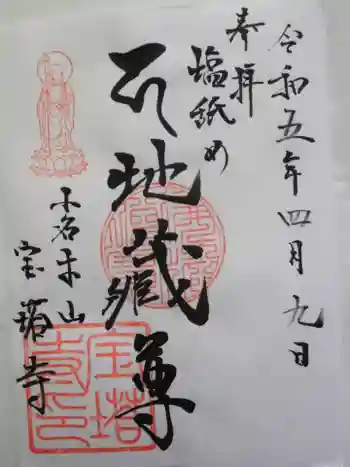 令和五年四月九日
奉拝
塩舐め
石地蔵尊
小名木山
宝塔寺
宝塔
寺印